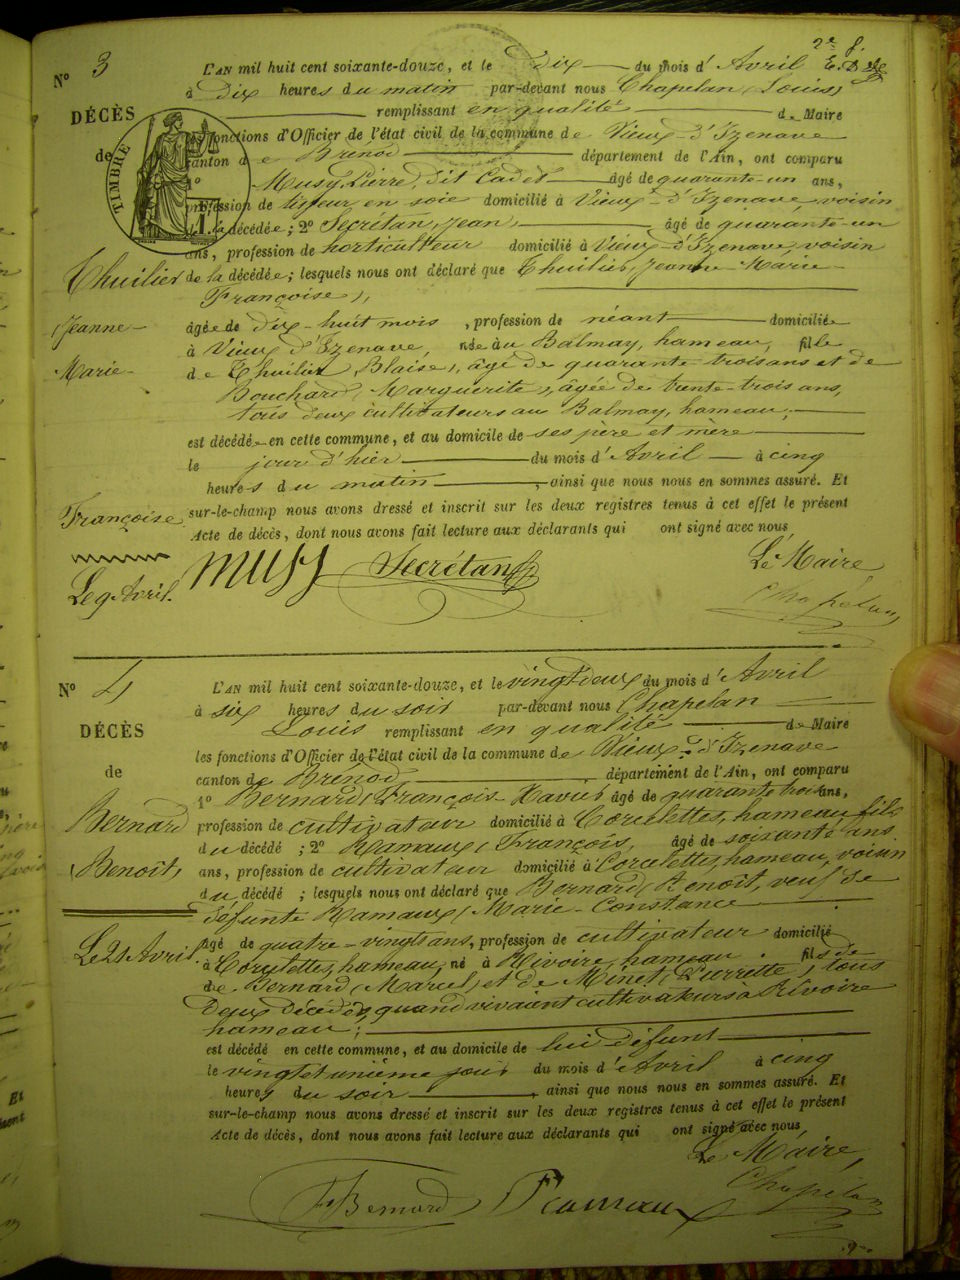 2e f.
N° 3
L'AN mil huit cent soixante-douze, et le dix du mois d'Avril
à dix heures du matin par-devant nous Chapelan (Louis)
DÉCÈS
remplissant en qualité de Maire
de
les fonctions d'Officier de l'état civil de la commune de Vieux-d'Izenave
TIMBRE
canton de Brénod département de l'Ain, ont comparu
1° Musy, Pierre, dit Cadet âgé de quarante-un ans,
profession de tisseur en soie domicilié à Vieux-d'Izenave, voisin
de la décédée ; 2° Secrétan, Jean, âgé de quarante-un
ans, profession de horticulteur domicilié à Vieux-d'Izenave, voisin
Thuilier
de la décédée ; lesquels nous ont déclaré que Thuilier, Jeanne-Marie-
Françoise,
(Jeanne-
âgée de dix-huit mois, profession de néant domiciliée
à Vieux d'Izenave, née au Balmay, hameau, fille
Marie-
de Thuilier, Blaise, âgé de quarante-trois ans et de
Bouchard, Marguerite, âgée de trente-trois ans,
tous deux cultivateurs au Balmay, hameau ;
est décédée en cette commune, et au domicile de ses père et mère
le jour d'hier du mois d'Avril à cinq
heures du matin, ainsi que nous nous en sommes assuré. Et
Françoise
sur-le-champ nous avons dressé et inscrit sur les deux registres tenus à cet effet le présent
Acte de décès, dont nous avons fait lecture aux déclarants qui ont signé avec nous
Le 9 Avril.
musy Secrétan
Le Maire
Chapelan
N° 4
L'AN mil huit cent soixante-douze, et le vingt deux du mois d'Avril
à six heures du soir par-devant nous Chapelan
DÉCÈS
Louis remplissant en qualité de Maire
les fonctions d'Officier de l'état civil de la commune de Vieux-d'Izenave
de
canton de Brénod département de l'Ain, ont comparu
1° Bernard (François-Xavier) âgé de quarante trois ans,
Bernard
profession de cultivateur domicilié à Corcelettes, hameau, fils
du décédé ; 2° Ramaux (François), âgé de soixante ans
(Benoît)
ans, profession de cultivateur domicilié à Corcelettes, hameau, voisin
du décédé ; lesquels nous ont déclaré que Bernard (Benoît, veuf de
défunte Ramaux (Marie-Constance
Le 21 Avril.
âgé de quatre-vingts ans, profession de cultivateur domicilié
à Corcelettes, hameau, né à Rivoire, hameau fils de
de Bernard (Marcel) et de Minet (Pierrette), tous
deux décédés, quand vivaient cultivateurs à Rivoire
hameau ;
est décédé en cette commune, et au domicile de lui défunt
le vingt et unième jour du mois d'Avril à cinq
heures du soir, ainsi que nous nous en sommes assuré. Et
sur-le-champ nous avons dressé et inscrit sur les deux registres tenus à cet effet le présent
Acte de décès, dont nous avons fait lecture aux déclarants qui ont signé avec nous
Le Maire,
Chapelan
Bernard Ramaux